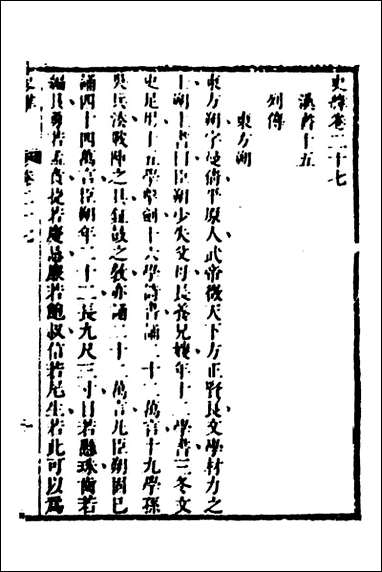 史緯卷二十七
漢書十五
列傳
東方朔
東方朔字曼倩平原人武帝徵天下方正賢良文學材力之
士朔上書曰臣朔少失父母長養兄嫂年十二學書三冬文
史足用十五學擊劍十六學詩書誦二十二萬言十九學孫
吳兵法戰陣之具鉦鼓之敎亦誦二十二萬言凡臣朔固已
誦四十四萬言臣朔年二十二長九尺三寸目若懸珠齒若
編貝勇若孟賁捷若慶忌廉若鮑叔信若尾生若此可以爲
卷二十七
一